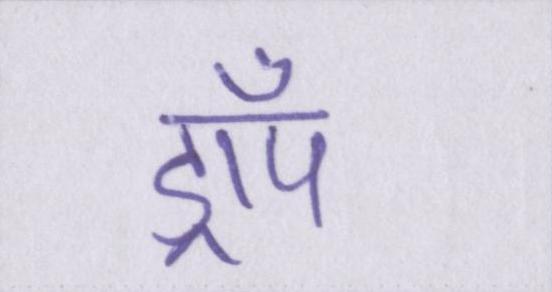 ड्राँप